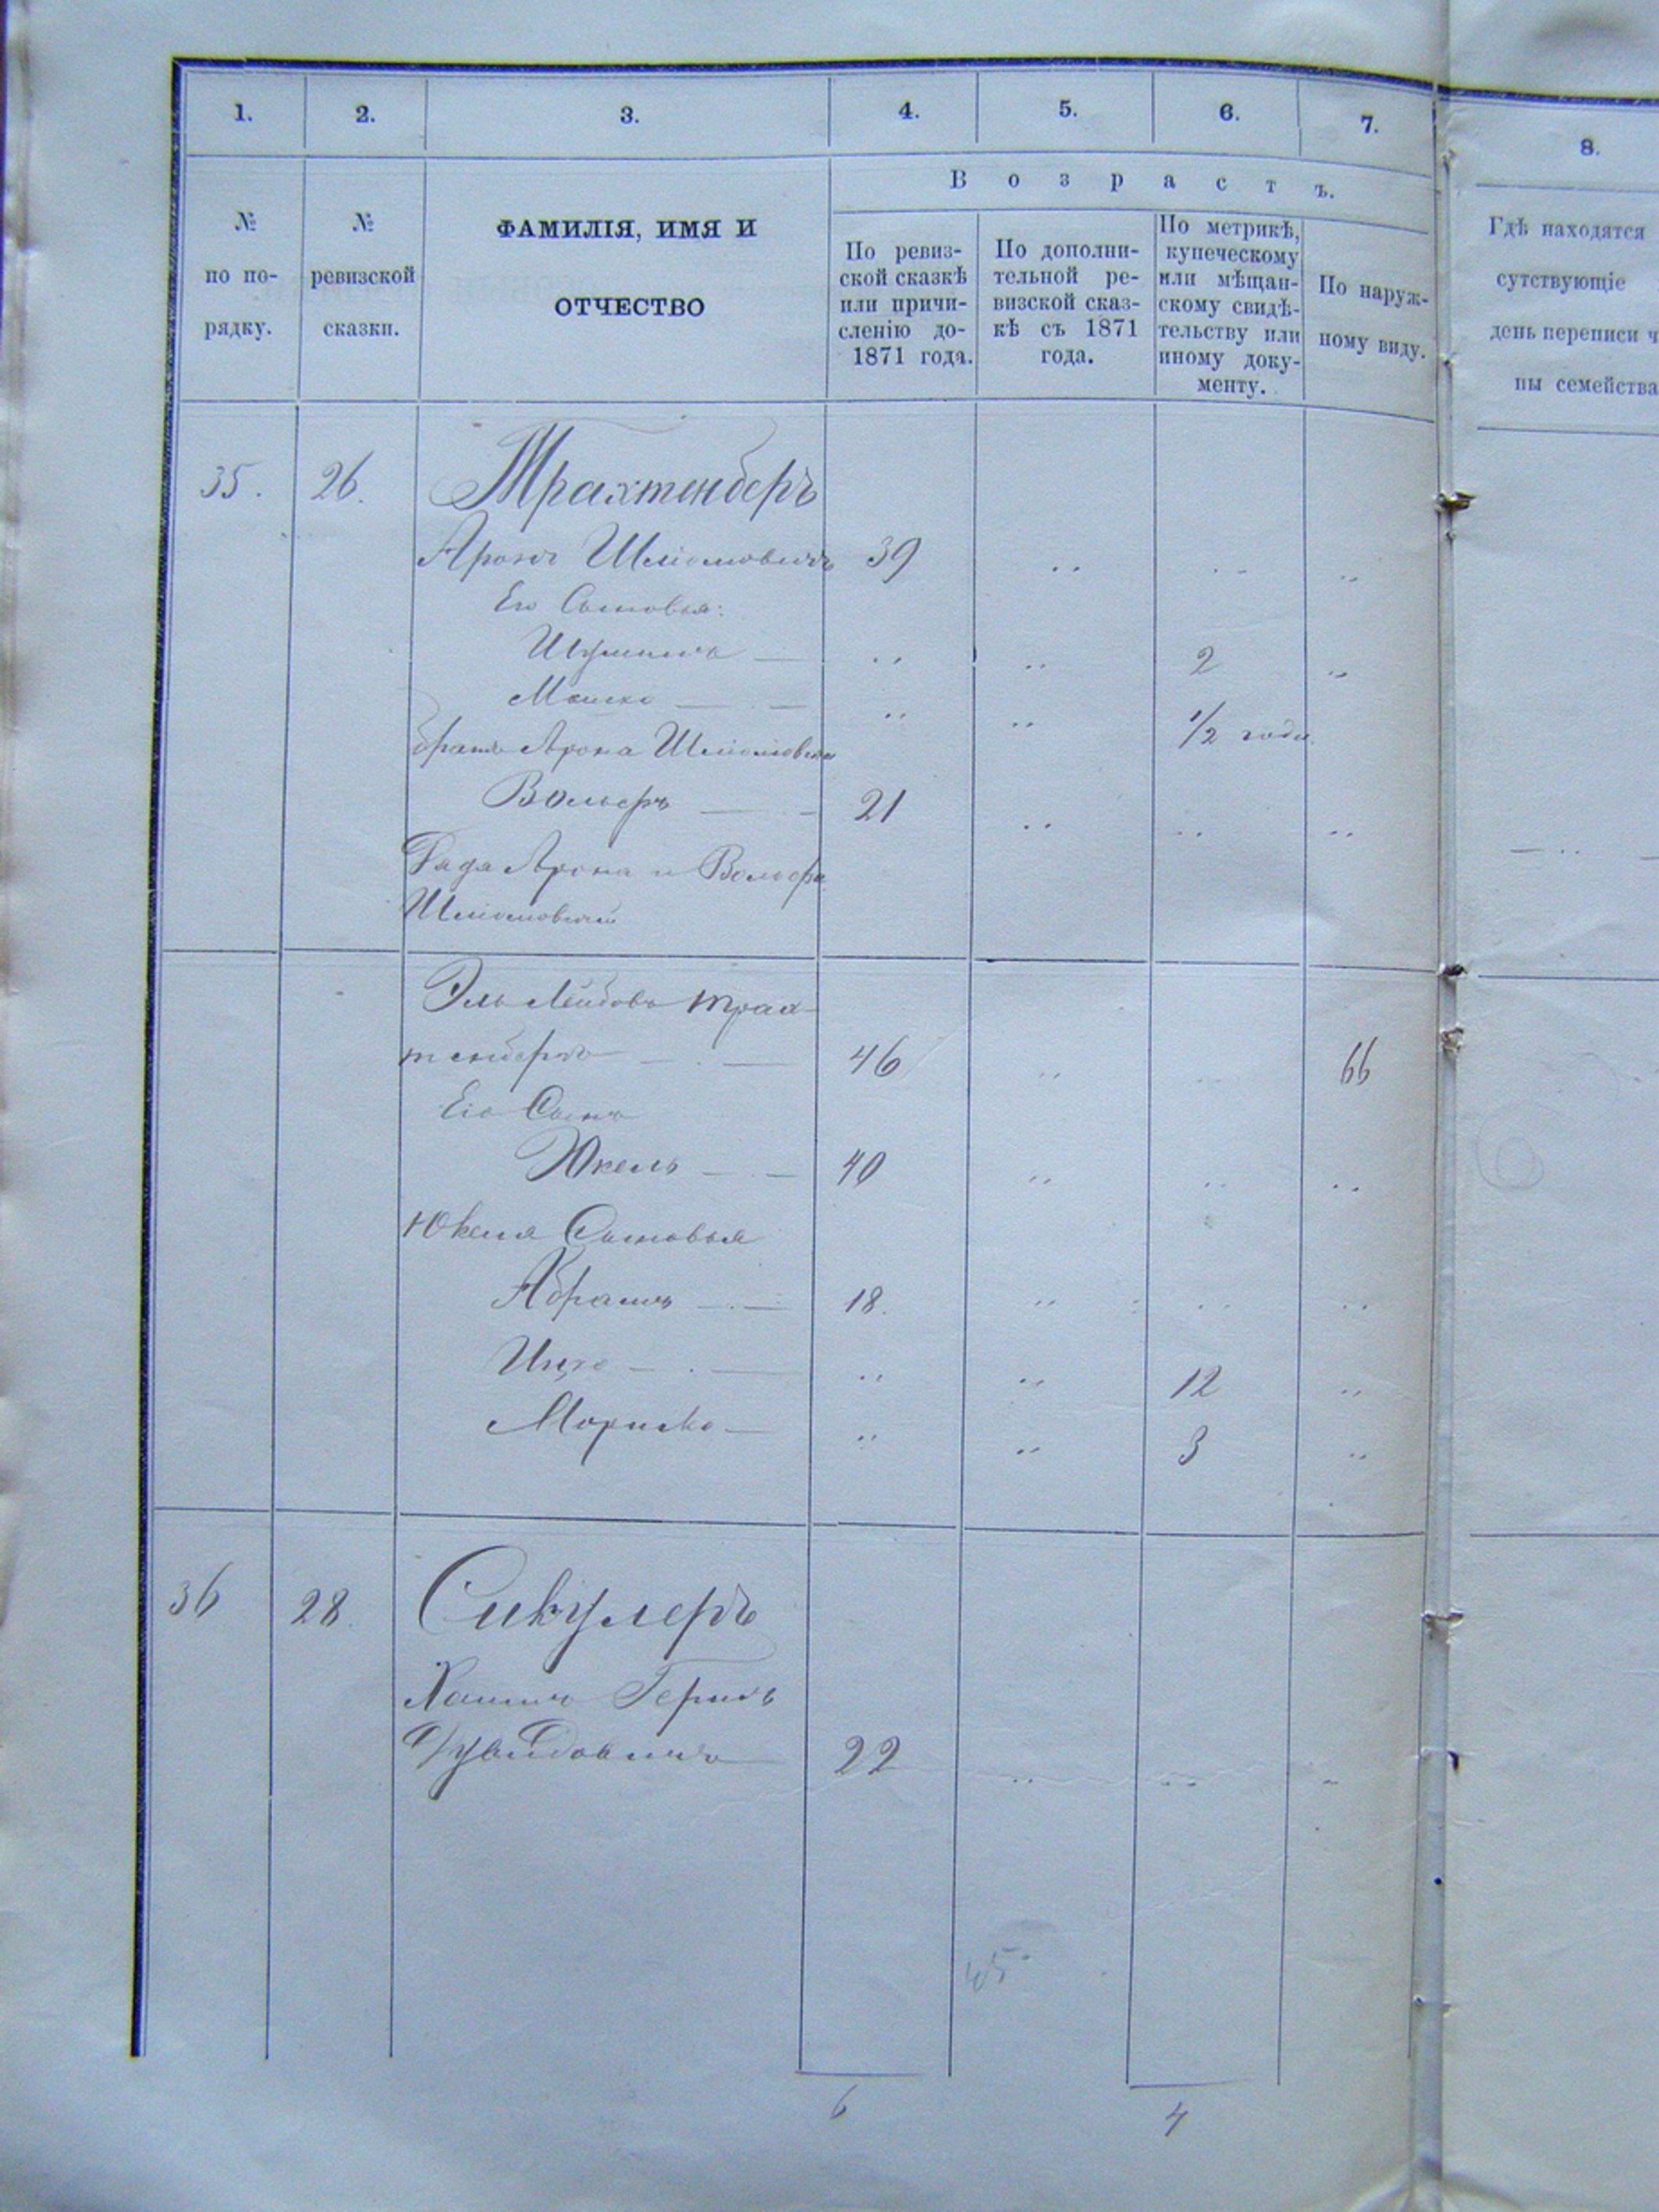 1. 2. 3. 4. 5. 6. 7. 8.
Возрастъ.
№ по по-рядку.
№ ревизской сказки.
ФАМИЛІЯ, ИМЯ И
ОТЧЕСТВО
По ревиз-
ской сказкѣ
или причи-
сленію до-
1871 года.
По дополни-
тельной ре-
визской сказ-
кѣ съ 1871
года.
По метрикѣ,
купеческому
или мѣщан-
скому свидѣ-
тельству или
иному доку-
менту.
По наруж-
ному виду.
Гдѣ находятся
сутствующіе
день переписи ч
ны семейства
35. 26. Трахтенберъ
Аронъ Шліомовичъ 39 .. .. ..
Его Сыновья:
.. .. 2 ..
Мошко .. .. 1/2 года
братъ Арона Шліомовича
Вольфъ 21 .. .. ..
Дядя Арона и Вольфа
Шліомовичей
Эль Лейбовъ Трах-
тенбергъ 46 .. .. 66
Его Сынъ
Юкель 40 .. .. ..
Юкеля Сыновья
Абрамъ 18. .. .. ..
Ицко .. .. 12 ..
Мошко .. .. 3 ..
36 28. Сикулеръ
Хаимъ Гершъ
Дувидовичъ 22 .. .. ..
45
6 4